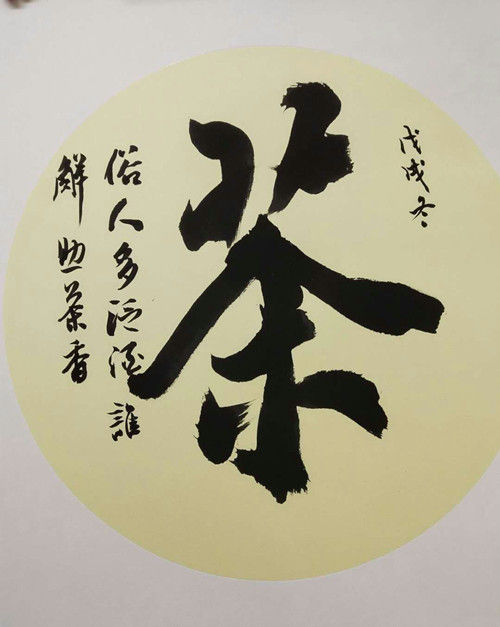 戊戌冬
茶
俗人多泛酒誰
解助茶香